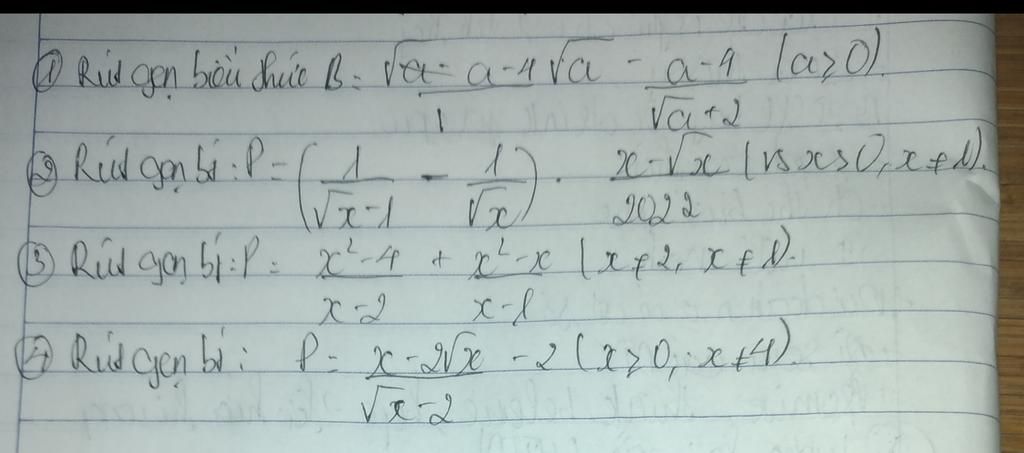 ① Rút gọn biểu thức B = √a - a-4√a / 1 - a-4 / √a+2 (a ≥ 0).
② Rút gọn bt: P = (1/√x-1 - 1/√x) . x-√x / 2022 (vs x > 0, x ≠ 1).
③ Rút gọn bt: P = x²-4 / x-2 + x²-x / x-1 (x ≠ 2, x ≠ 1).
④ Rút gọn bt: P = x-2√x / √x-2 - 2 (x ≥ 0, x ≠ 4).